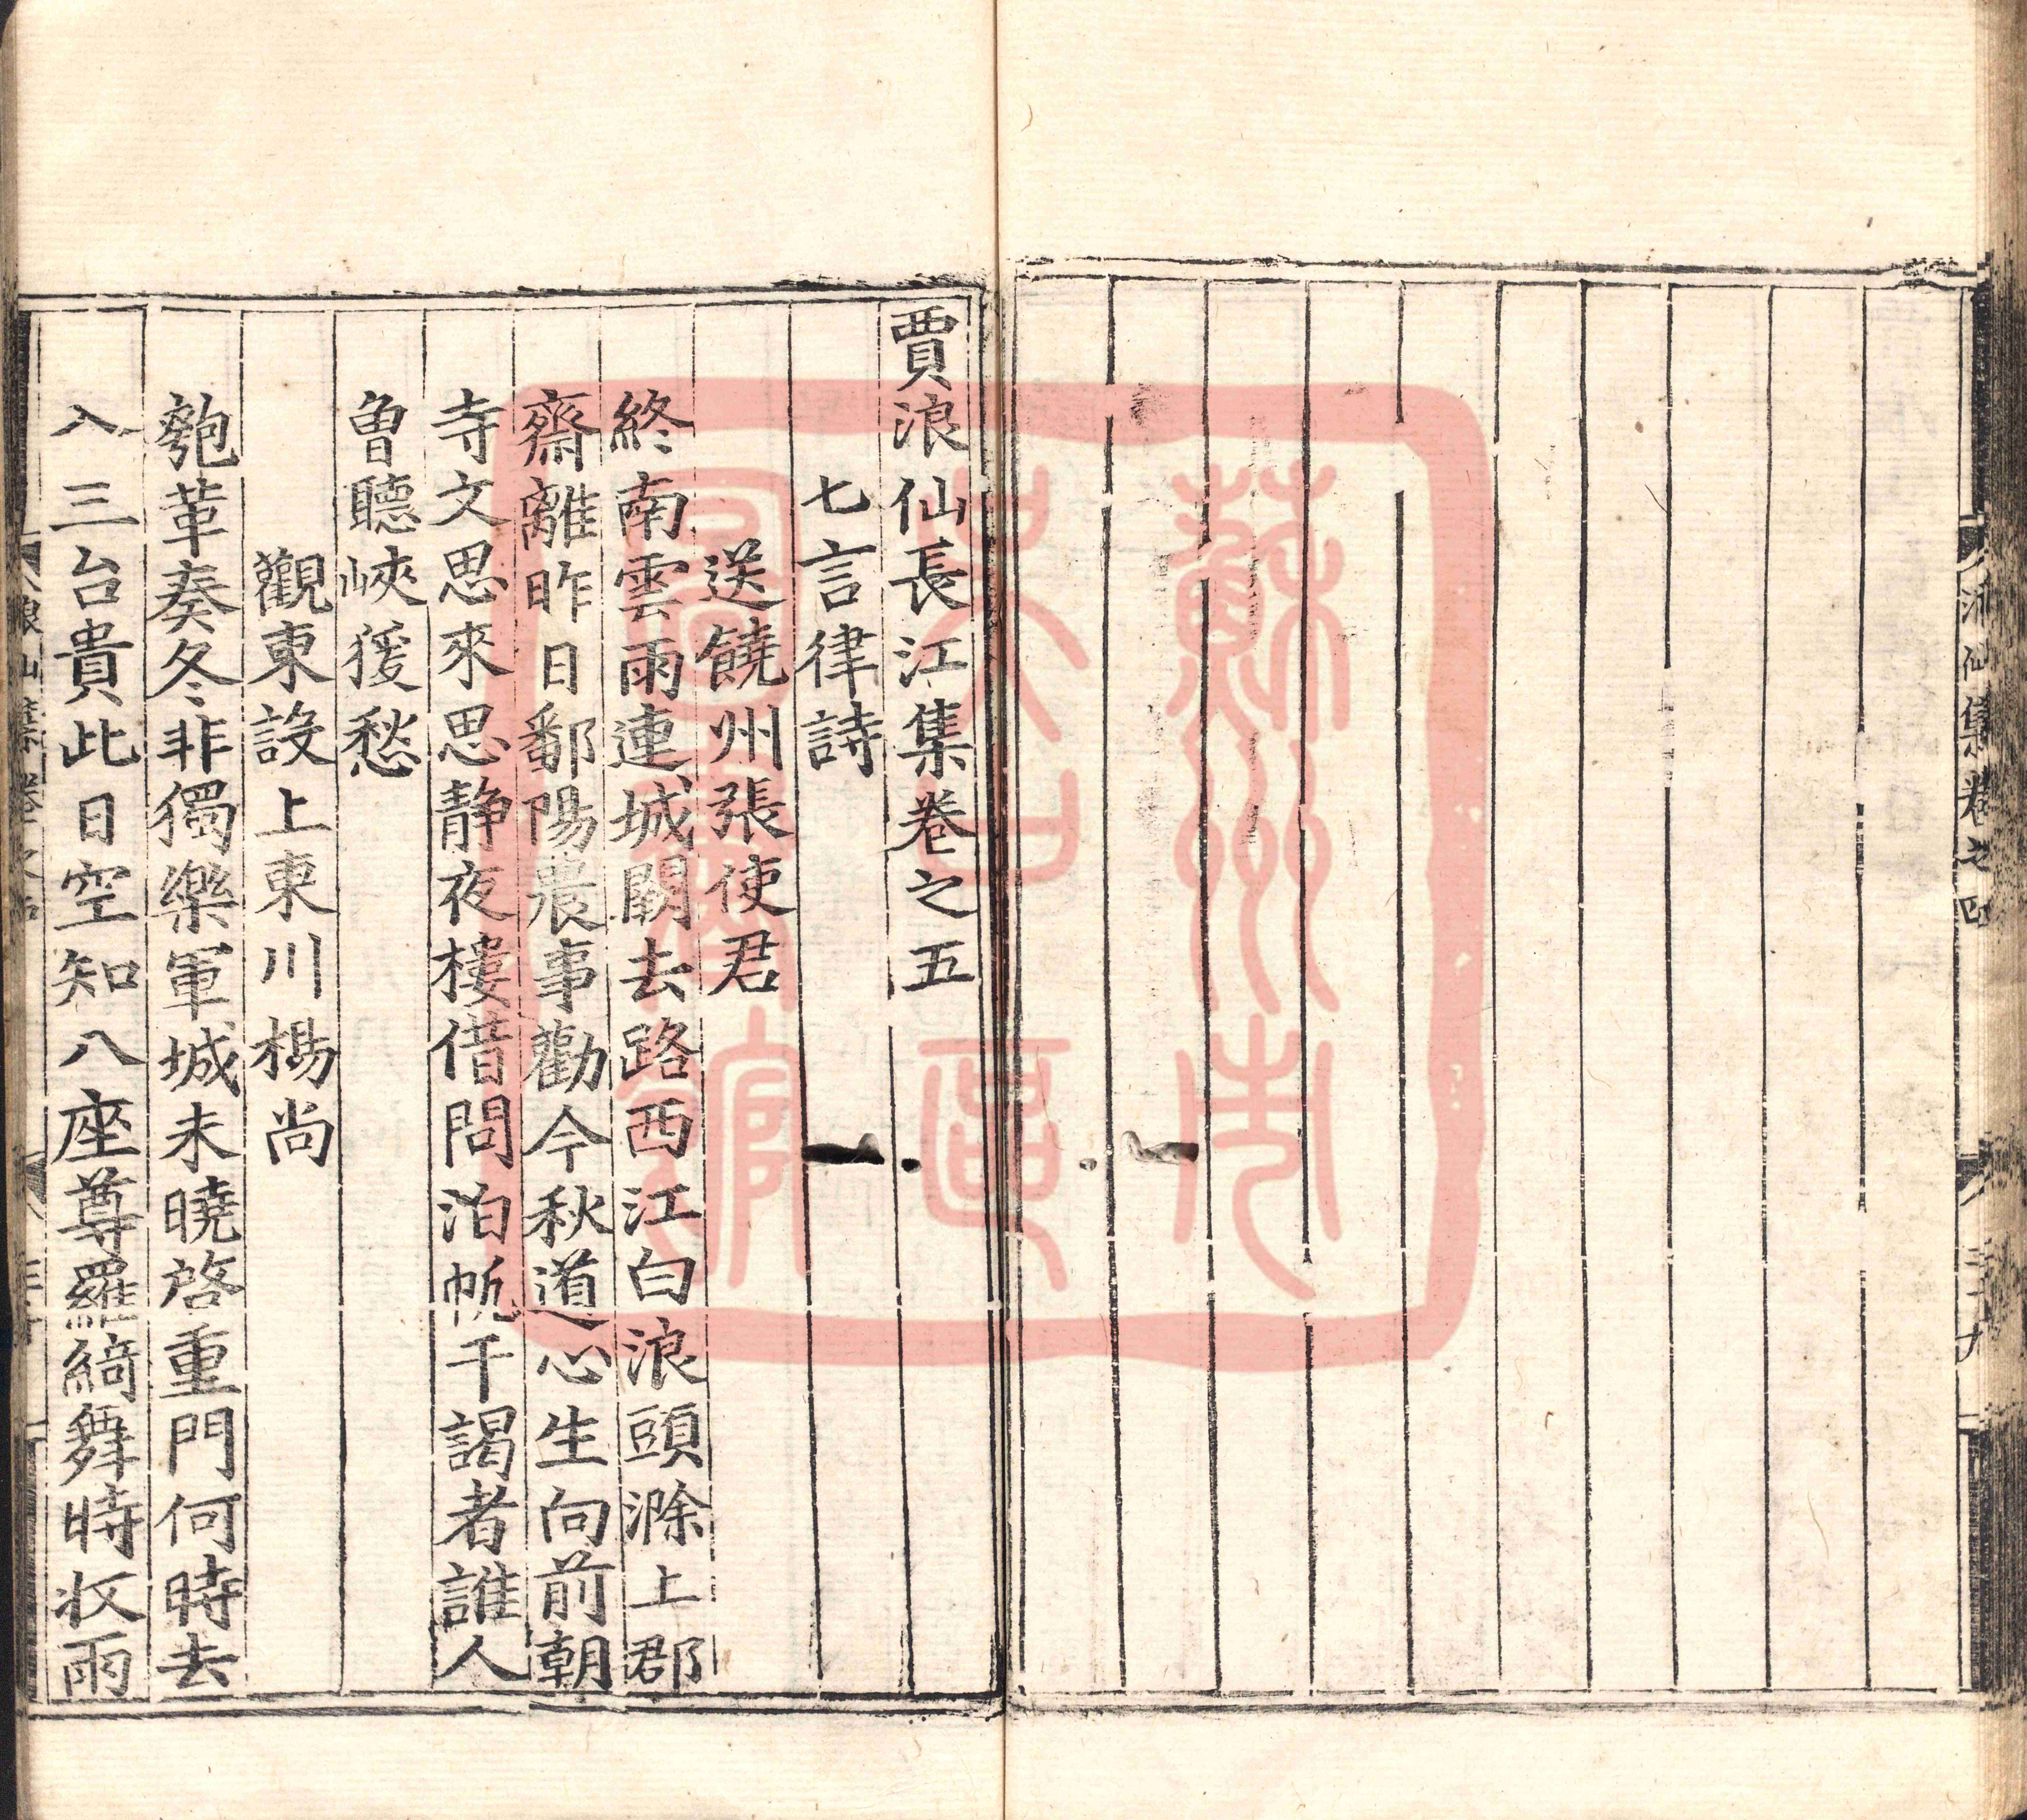 浪仙集卷之四
三十九
賈浪仙長江集卷之五
七言律詩
送饒州張使君
終南雲雨連城闕去路西江白浪頭滁上郡
齋離昨日鄱陽農事勸今秋道心生向前朝
寺文思來思静夜樓借問泊帆干謁者誰人
曾聽峽猨愁
觀東設上東川楊尚
匏革奏冬非獨樂軍城未曉啓重門何時去
入三台貴此日空知八座尊羅綺舞時收雨
蘇州市
吴中區
圖書館